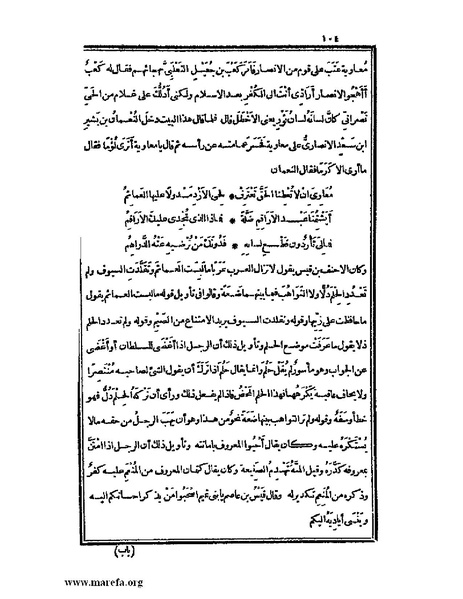 ١٠٤
معاوية عتب على قوم من الانصار فأمر كعب بن جعيل التغلبي بهجائهم فقال له كعب
أأهجو الانصار أرادّي أنت الى الكفر بعد الاسلام ولكني أدلك على غلام من الحي
نصراني كأن لسانه لسان ثور يعني الأخطل قال فلما قال هذا البيت دخل النعمان بن بشير
ابن سعد الانصاري على معاوية فحسر عمامته عن رأسه ثم قال يا معاوية أترى لؤما فقال
ما أرى الا كرما فقال النعمان
معاوي ان لا تعطنا الحق تعترف * لحي الأزد مسدولا عليها العمائم
أيشتمنا عبد الاراقم ضلة * فماذا الذي تجدي عليك الاراقم
فمالي ثأر دون قطع لسانه * فدونك من ترضيه عنه الدراهم
وكان الاحنف بن قيس يقول لا تزال العرب عربا ما لبست العمائم وتقلدت السيوف ولم
تعدد الحلم ذلا ولا التواهب فيما بينها ضعة وقالوا في تأويل قوله ما لبست العمائم يقول
ما حافظت على زيها وقوله وتقلدت السيوف يريد الامتناع من الضيم وقوله ولم تعدد الحلم
ذلا يقول ما عرفت موضع الحلم وتأويل ذلك أن الرجل اذا أغضى للسلطان أو أغضى
عن الجواب وهو مأسور لم يقل حلم وانما يقال حلم اذا ترك أن يقول الشئ لصاحبه منتصرا
ولا يخاف عاقبة يكرهها فهذا الحلم المحض فاذا لم يفعل ذلك ورأى أن تركه الحلم ذل فهو
خطأ وسفه وقوله ولم تر التواهب بينها ضعة نحو من هذا وهو أن يهب الرجل من حقه ما لا
يستكره عليه وكان يقال أحيوا المعروف باماتته وتأويل ذلك أن الرجل اذا امتن
بمعروفه كدره وقيل المنة تهدم الصنيعة وكان يقال كتمان المعروف من المنعم عليه كفر
وذكره من المنعم تكدير له وقال قيس بن عاصم يا بني تميم اصحبوا من يذكر احسانكم اليه
وينسى أياديه اليكم
(باب)
www.marefa.org